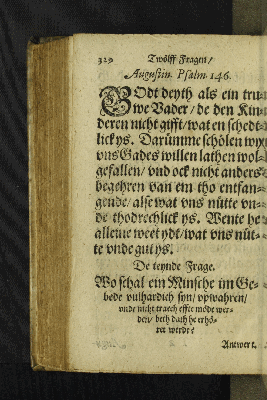 320 Twölff Fragen/
Augustin. Psalm. 146.
GOdt deyth als ein tru-
we Vader/ de den Kin-
deren nicht gifft/ wat en schedt-
lick ys. Darümme schölen wy
vns Gades willen lathen wol-
gefallen/ vnd ock nicht anders
begehren van em tho entfan-
gende/ alse wat vns nütte vn-
de thodrechlick ys. Wente he
alleine weet ydt/ wat vns nüt-
te vnde gut ys.
De teynde Frage.
Wo schal ein Minsche im Ge-
bede vulhardich syn/ vpwahren/
vnde nicht traech effte möde wer-
den/ beth dath he erhö-
ret werde?
Antwert.